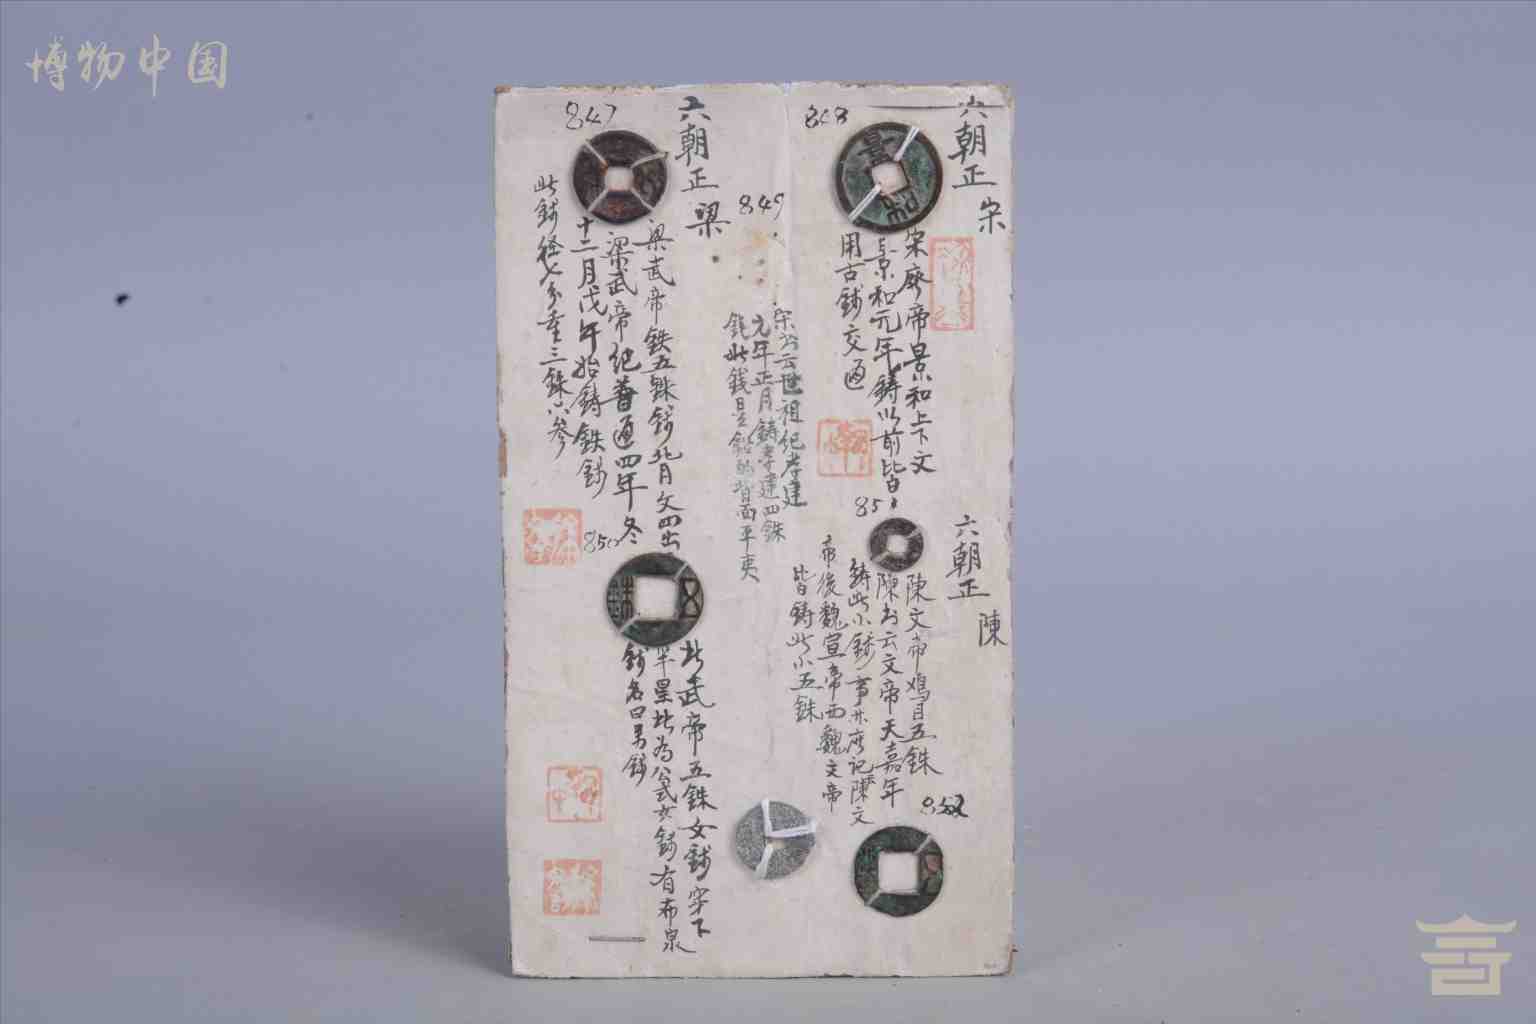 博物中国
848
六朝正 宋
景和
宋廢帝景和上下文
景和元年鋳以前皆
用古錢交通
849
宋书云世祖纪孝建
元年正月鋳孝建四銖
錢此錢是鉛的背面平夷
847
六朝正 梁
梁武帝鉄五銖錢北月文四出
梁武帝纪普通四年冬
十二月戊午始鋳鉄錢
此錢径七分重三銖八参
851
六朝正 陳
陳文帝鳮目五銖
陳书云文帝天嘉年
鋳此小錢事并府记陳文
帝後魏宣帝西魏文帝
皆鋳此小五銖
850
五銖
北武帝五銖女錢穿下
半星此為公式女錢有布泉
錢名曰男錢
852